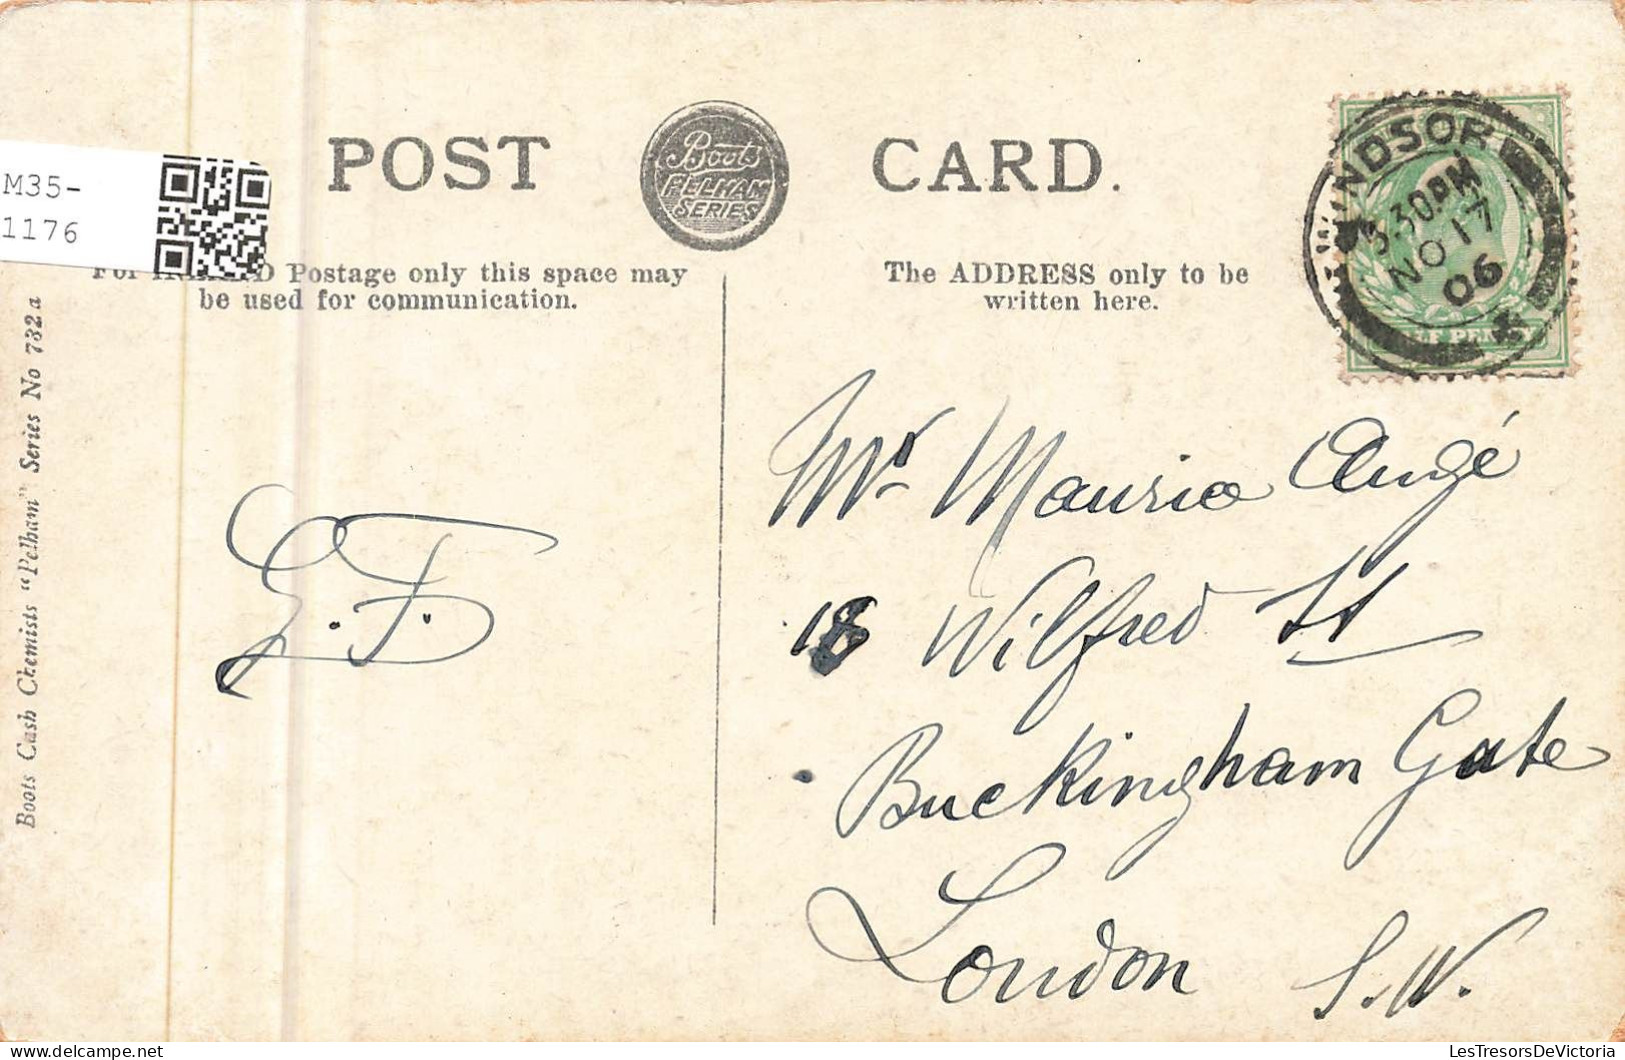 POST CARD.
Boots
PELHAM
SERIES
M35-
1176
For INLAND Postage only this space may
be used for communication.
The ADDRESS only to be
written here.
WINDSOR
3.30PM
NO 17
06
Boots Cash Chemists "Pelham" Series No 732 a
E.F.
Mr Maurice Angé
18 Wilfred St
Buckingham Gate
London S.W.
LesTresorsDeVictoria